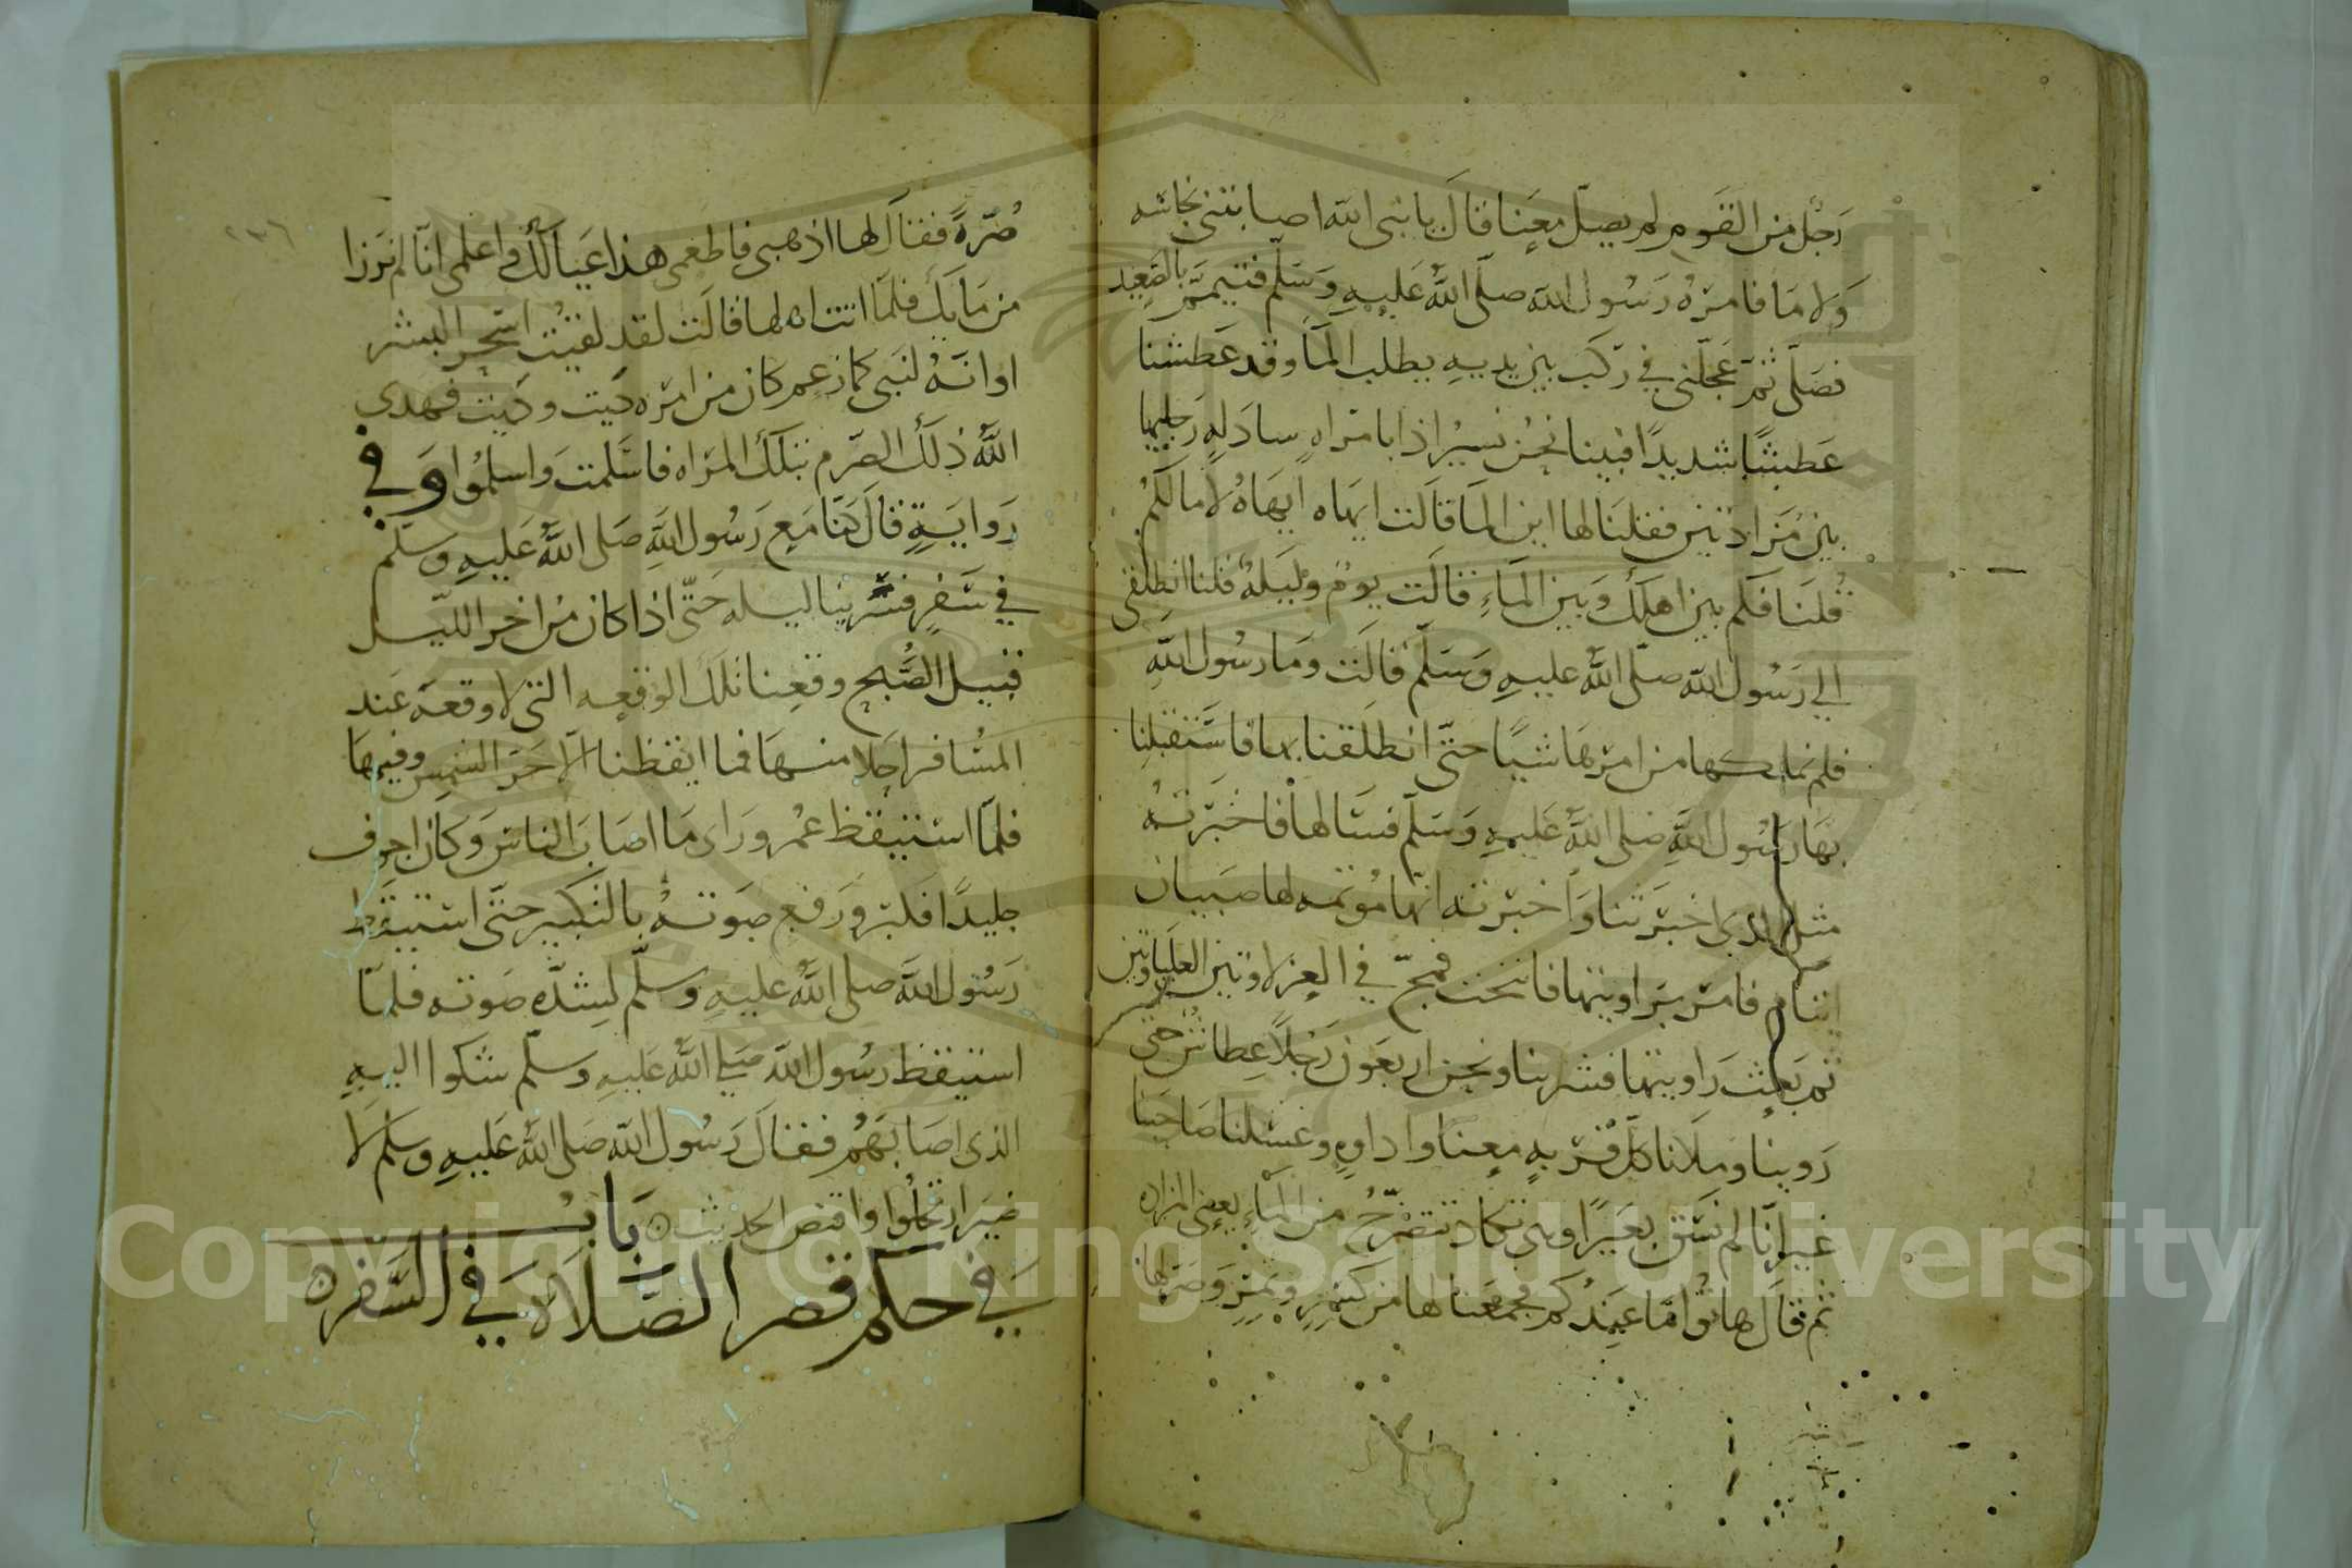 رَجُل من القوم لم يصلّ معنا قال يا نبى الله اصابتنى جنابه
ولا ما فامره رسول الله صلى الله عليه وسلم فتيمم بالصعيد
فصلى ثم عجلنى في ركب بين يديه يطلب الما وقد عطشنا
عطشًا شديدًا فبينا نحن نسير اذا بامراه سادله رجليها
بين مزادتين فقلنا لها اين الما قالت ايهاه ايهاه لا ما لكم
قلنا فكم بين اهلك وبين الماء قالت يوم وليله قلنا انطلقى
الي رسول الله صلى الله عليه وسلم قالت وما رسول الله
فلم نملكها من امرها شيا حتى انطلقنا بها فاستقبلنا
بها رسول الله صلى الله عليه وسلم فسالها فاخبرته
مثل الذى اخبرتنا واخبرته انها موتمه لها صبيان
ايتام فامر براويتها فانيخت فمج في العزلاوين العلياوين
ثم بعث براويتها فشربنا ونحن اربعون رجلا عطاش حتى
روينا وملانا كل قربه معنا واداوه وغسلنا صاحبنا
غير انا لم نسق بعيرًا وهى تكاد تتضرج من الماء يعنى المزاده
ثم قال هاتوا ما عندكم فجمعنا لها من كسر وتمر وصر لها
صُرّةً فقال لها اذهبى فاطعمى هذا عيالك واعلمى انا لم نرزا
من مايك فلما اتت اهلها قالت لقد لقيت اسحر البشر
او انه لنبى كما زعم كان من امره كيت وكيت فهدى
الله ذلك الصرم بتلك المراه فاسلمت واسلموا وفي
رواية قال كنا مع رسول الله صلى الله عليه وسلم
في سفر فسرينا ليله حتى اذا كان من اخر الليل
قبيل الصبح وقعنا تلك الوقعه التى لا وقعه عند
المسافر احلا منها فما ايقظنا الا حر الشمس وفيها
فلما استيقظ عمر وراى ما اصاب الناس وكان اجوف
جليدًا فكبر ورفع صوته بالتكبير حتى استيقظ
رسول الله صلى الله عليه وسلم لشده صوته فلما
استيقظ رسول الله صلي الله عليه وسلم شكوا اليه
الذى اصابهم فقال رسول الله صلى الله عليه وسلم لا
ضير ارتحلوا واقتص الحديث باب
في حكم قصر الصلاة في السفر
Copyright © King Saud University